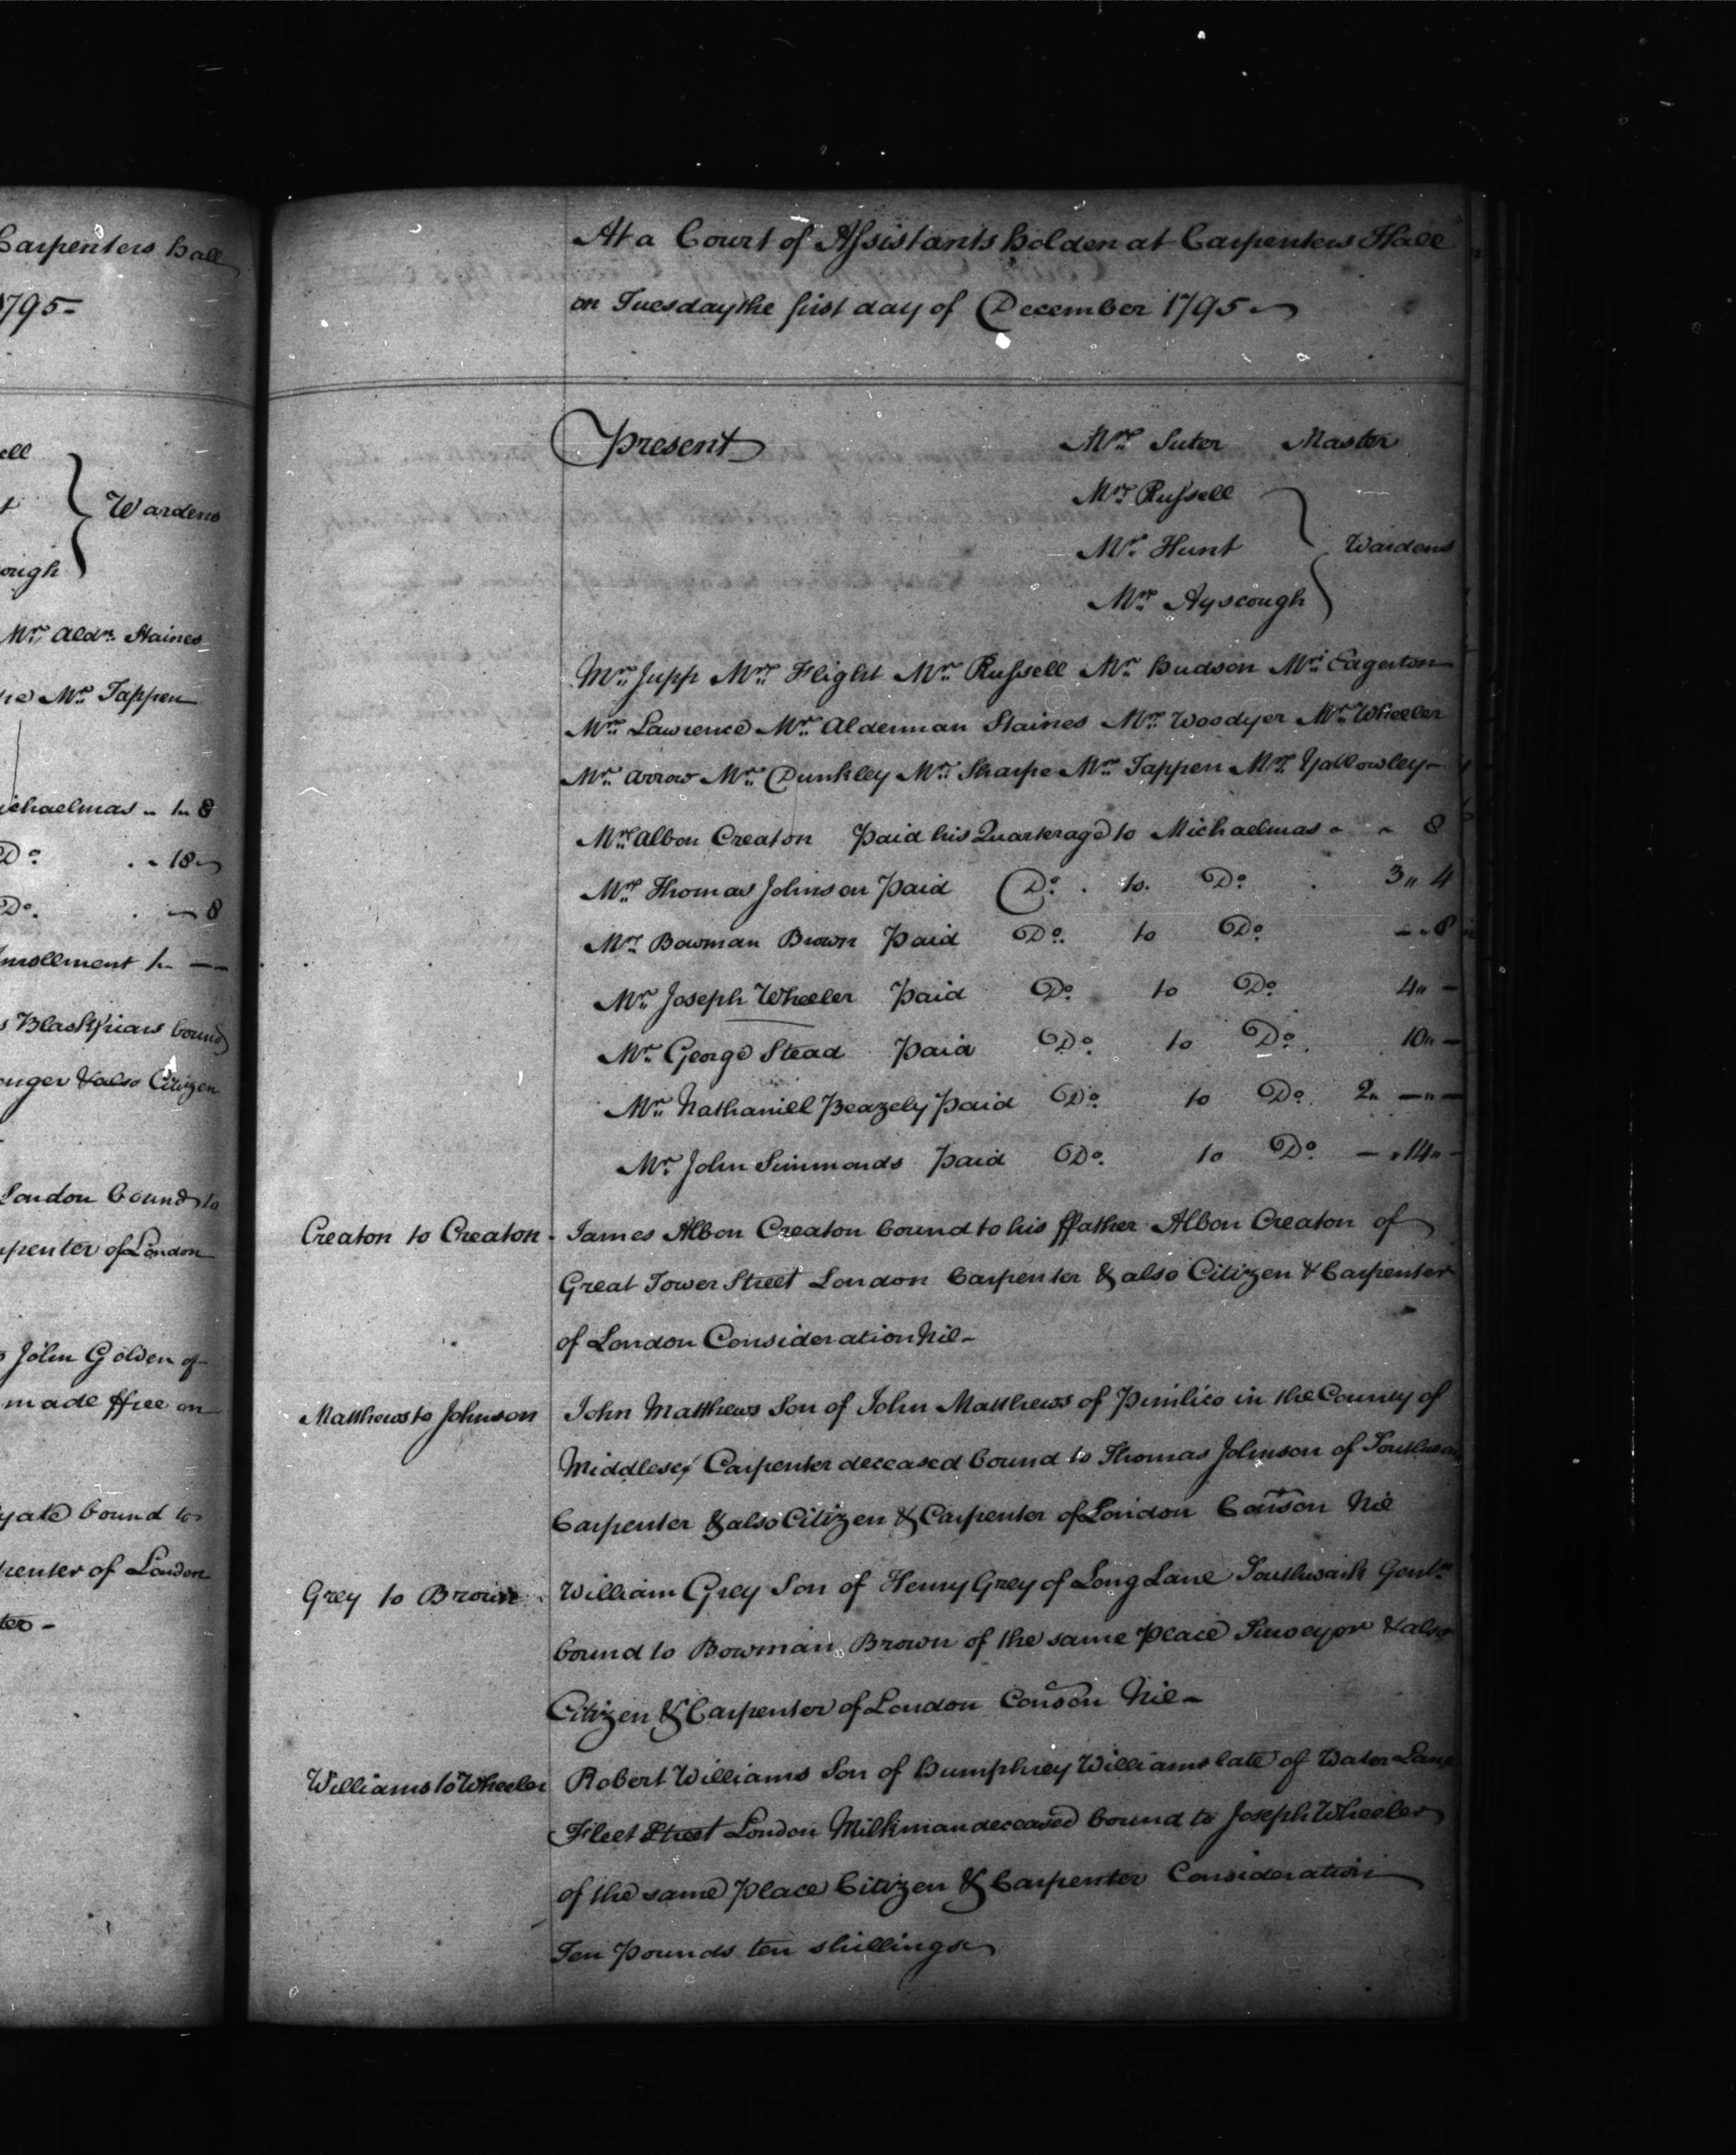 Carpenters hall
1795-
ell
t
ough
Wardens
Mr. Aldn. Staines
Mr. Tappen
ichaelmas " 1 " 8
Do. " 18 "
Do. - 8
nrollment 1 " —
Blackfriars bound
onger & also Citizen
London bound to
rpenter of London
John Golden of
made ffree on
gate bound to
penter of London
ter -
At a Court of Assistants holden at Carpenters Hall
on Tuesday the first day of December 1795
Present Mr. Suter Master
Mr. Russell
Mr. Hunt Wardens
Mr. Ayscough
Mr. Jupp Mr. Flight Mr. Russell Mr. Hudson Mr. Eagerton
Mr. Lawrence Mr. Alderman Staines Mr. Woodyer Mr. Wheeler
Mr. Arrow Mr. Dunkley Mr. Sharpe Mr. Tappen Mr. Yallowley-
Mr. Albon Creaton Paid his Quarterage to Michaelmas " " 8
Mr. Thomas Johnson Paid Do. to Do. 3 " 4
Mr. Bowman Brown Paid Do. to Do. - " 8
Mr. Joseph Wheeler Paid Do. to Do. 4 " -
Mr. George Stead Paid Do. to Do. 10 " -
Mr. Nathaniell Beazely Paid Do. to Do. 2 " - " -
Mr. John Simmonds Paid Do. to Do. - " 14 " -
Creaton to Creaton - James Albon Creaton bound to his ffather Albon Creaton of
Great Tower Street London Carpenter & also Citizen & Carpenter
of London Consideration Nil-
Matthews to Johnson John Matthews Son of John Matthews of Pimlico in the County of
Middlesex Carpenter deceased bound to Thomas Johnson of Southwark
Carpenter & also Citizen & Carpenter of London Conson Nil
Grey to Brown William Grey Son of Henry Grey of Long Lane Southwark Gentn.
bound to Bowman Brown of the same place Surveyor & also
Citizen & Carpenter of London Conson Nil-
Williams to Wheeler Robert Williams Son of Humphrey Williams late of Water Lane
Fleet Street London Milkman deceased bound to Joseph Wheeler
of the same Place Citizen & Carpenter Consideration
Ten Pounds ten shillings